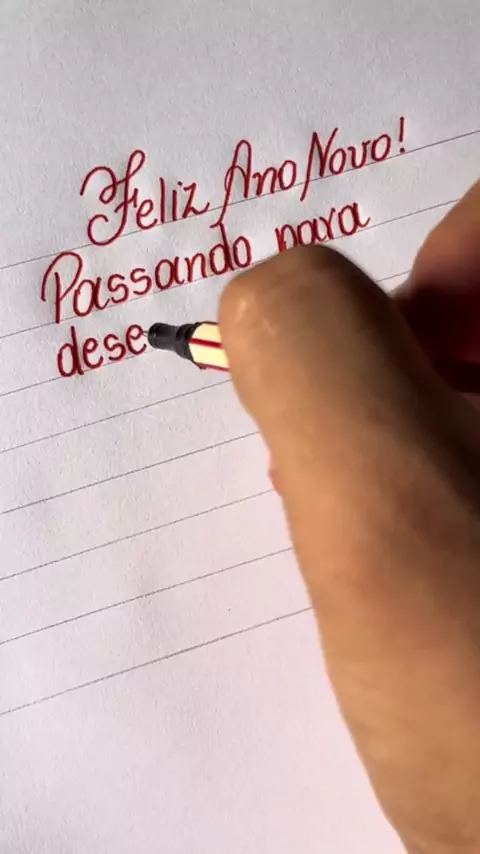 Feliz Ano Novo!
Passando para
dese